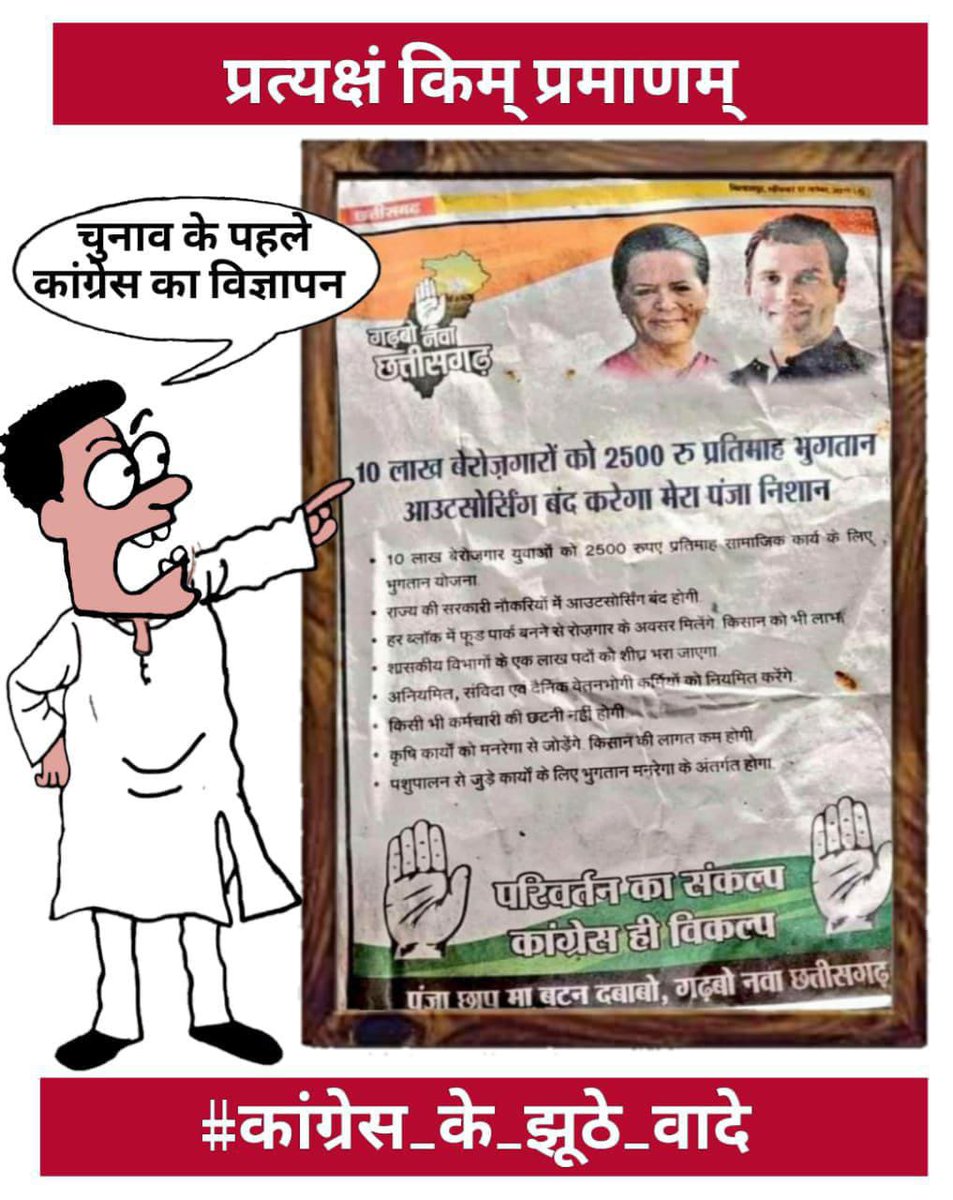 प्रत्यक्षं किम् प्रमाणम्
चुनाव के पहले
कांग्रेस का विज्ञापन
छत्तीसगढ़
गढ़बो नवा
छत्तीसगढ़
10 लाख बेरोज़गारों को 2500 रु प्रतिमाह भुगतान
आउटसोर्सिंग बंद करेगा मेरा पंजा निशान
• 10 लाख बेरोज़गार युवाओं को 2500 रुपए प्रतिमाह सामाजिक कार्य के लिए
भुगतान योजना.
• राज्य की सरकारी नौकरियों में आउटसोर्सिंग बंद होगी.
• हर ब्लॉक में फूड पार्क बनने से रोज़गार के अवसर मिलेंगे. किसान को भी लाभ.
• शासकीय विभागों के एक लाख पदों को शीघ्र भरा जाएगा.
• अनियमित, संविदा एवं दैनिक वेतनभोगी कर्मियों को नियमित करेंगे.
• किसी भी कर्मचारी की छटनी नहीं होगी.
• कृषि कार्यों को मनरेगा से जोड़ेंगे. किसान की लागत कम होगी.
• पशुपालन से जुड़े कार्यों के लिए भुगतान मनरेगा के अंतर्गत होगा.
परिवर्तन का संकल्प
कांग्रेस ही विकल्प
पंजा छाप मा बटन दबाबो, गढ़बो नवा छत्तीसगढ़
#कांग्रेस_के_झूठे_वादे